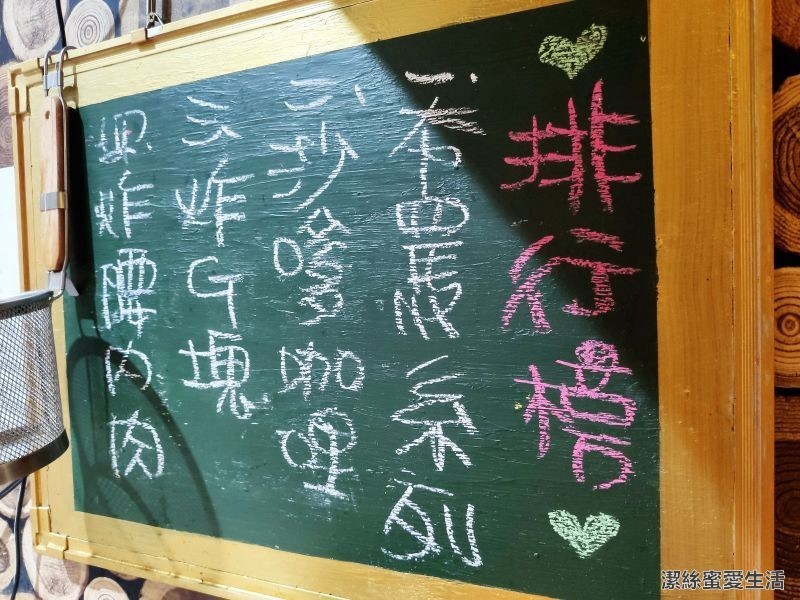 排行榜
一、布農系列
二、沙嗲咖哩
三、炸G塊
四、炸腰內肉
潔絲蜜愛生活